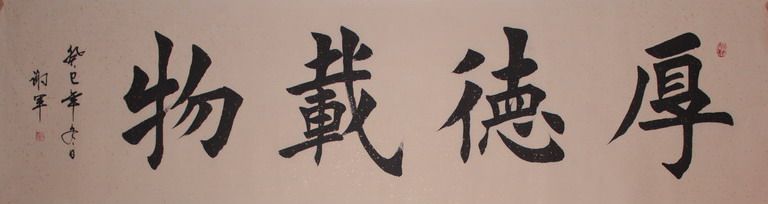 厚德載物
癸巳年冬日
谢军